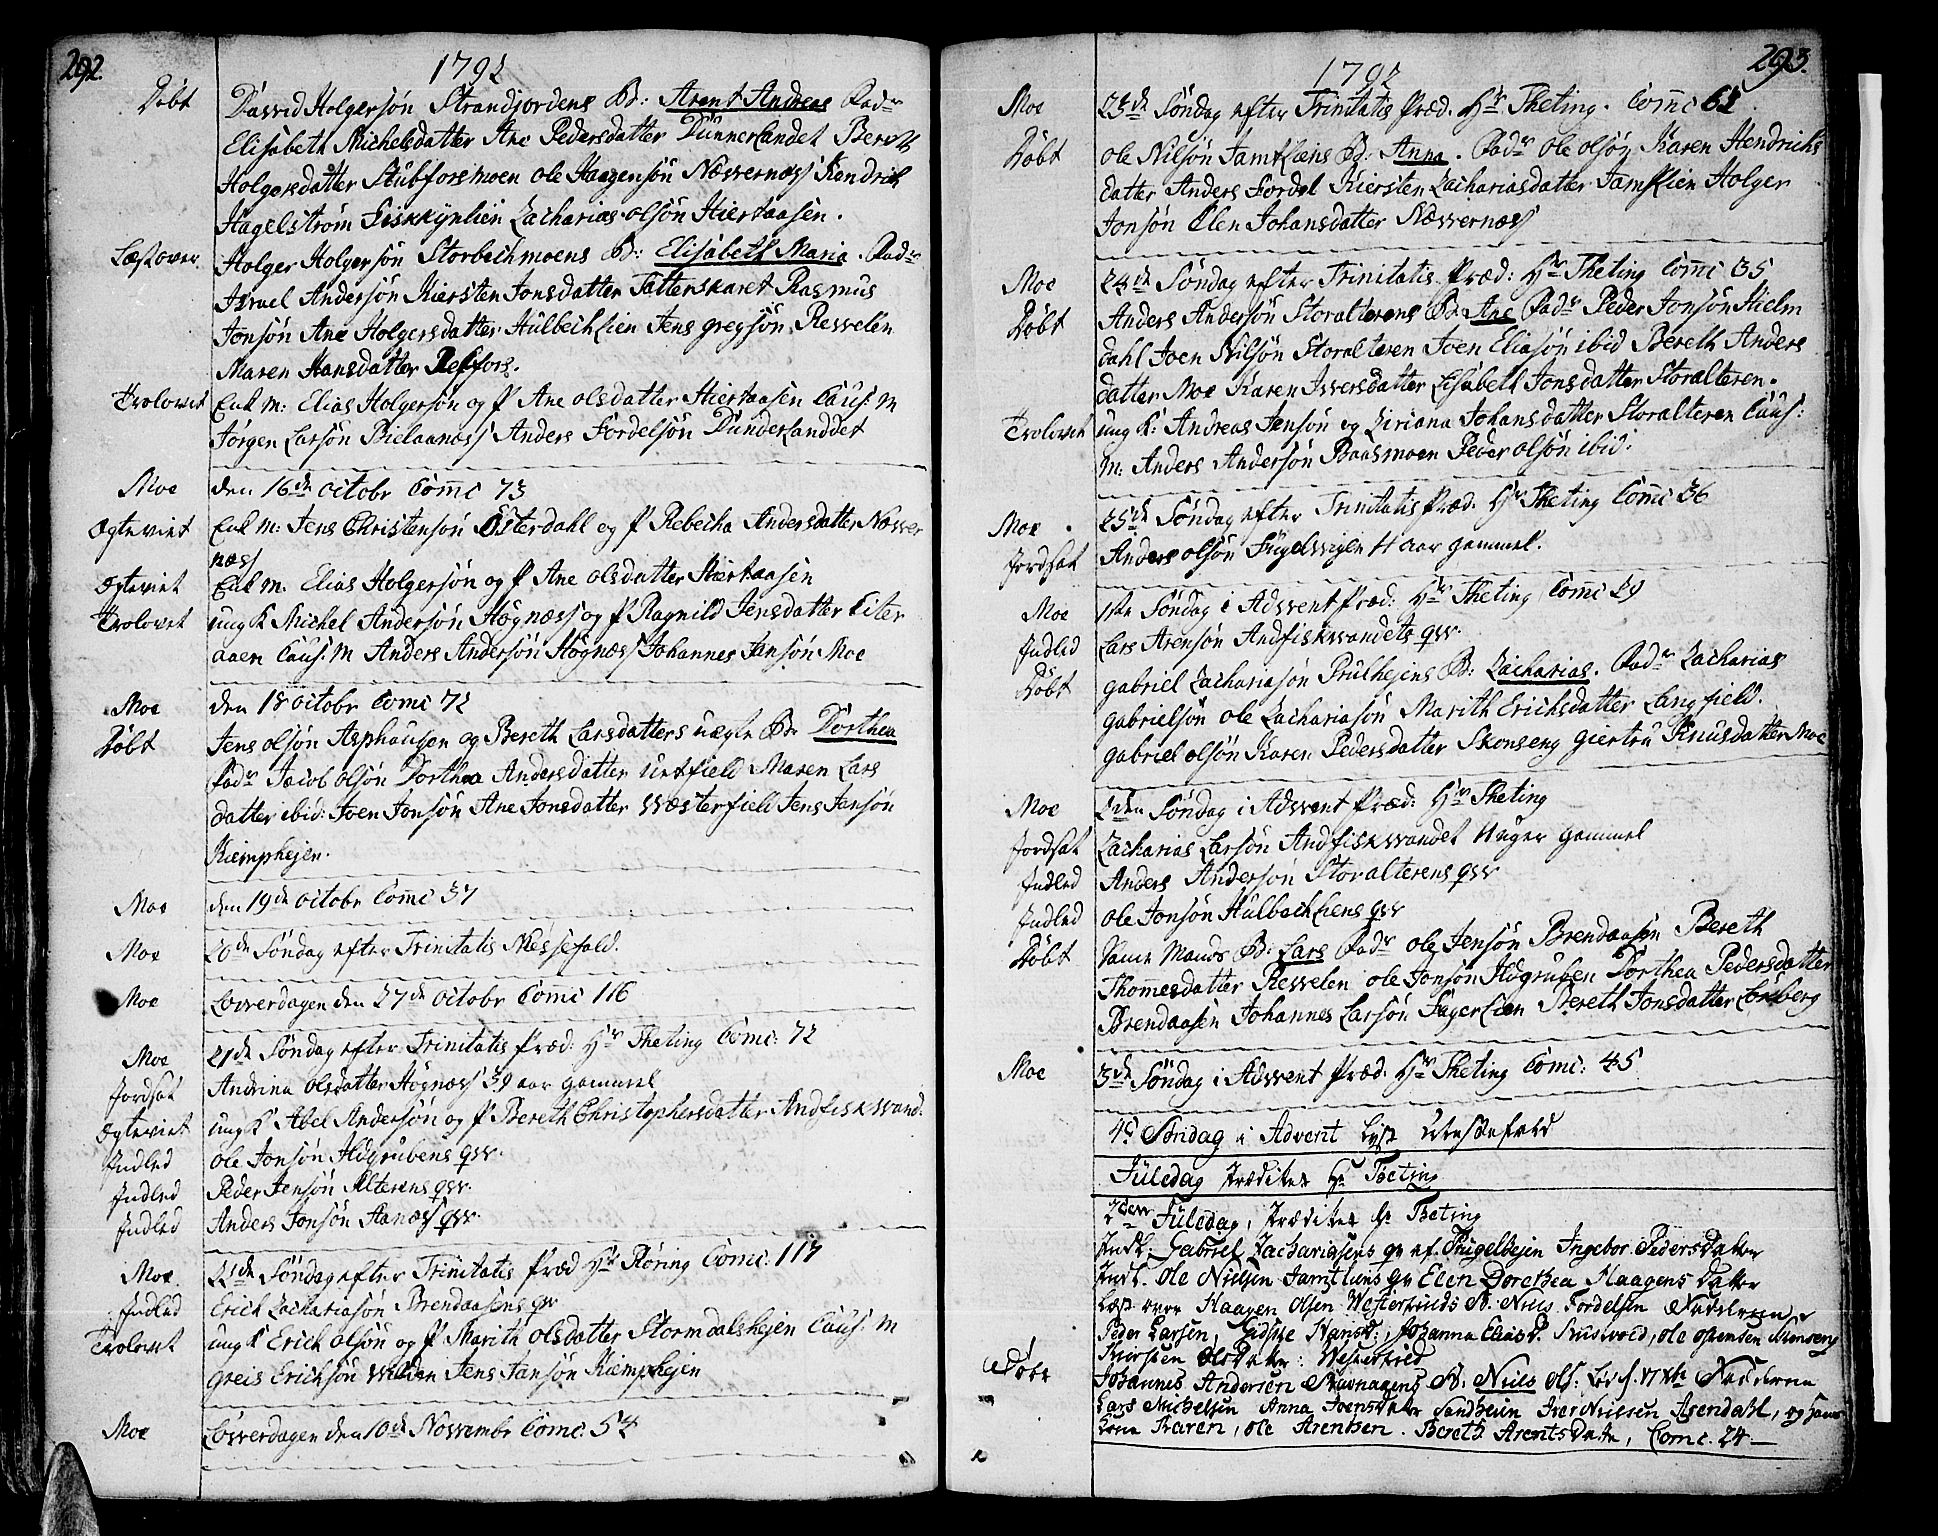 292.
1792
Døbt David Holgersøn Strandjordens B: Arent Andreas Fadr
Elisabeth Michelsdatter Ane Pedersdatter Dunnerlandet Bereth
Holgersdatter Stubforsmoen ole Haagensøn Næssernæss Hendrik
Hagelstrøm Fiskkynlien Zacharias olsøn Hiertaasen.
Læstover Holger Holgersøn Storbechmoens B: Elisabeth Maria. Fadr
Israel Andersøn Kiersten Jonsdatter Tatterskaret Rasmus
Jonsøn Ane Holgersdatter Hulbechlien Jens gregsøn Ressvelen
Maren Hansdatter Reffors.
Trolovet Enk m: Elias Holgersøn og P Ane olsdatter Hiertaasen Caus: M
Jørgen Larsøn Bielaanæss Anders Fordelsøn Dunderlanddet
Moe den 16de octobr Comc 73
Egteviet Enk m: Jens Christensøn Østerdahl og P Rebecka Andersdatter Næsser
næss
Egteviet Enk m. Elias Holgersøn og P Ane olsdatter Hiertaasen
Trolovet ung K Michel Andersøn Høgnæss og P Ragnild Jensdatter Eiter
aaen Caus: M Anders Andersøn Høgnæss Johannes Jansøn Moe
Moe den 18 octobr Comc 72
Døbt Jens olsøn Asphaugen og Bereth Larsdatters uægte B: Dorthea
Fadr Jacob olsøn Dorthea Andersdatter Urtfield Maren Lars
datter ibid: Joen Jonsøn Ane Jonsdatter Wæsterfield Jens Jansøn
Kiemphejen.
Moe den 19de octobr Comc 37
Moe 20de Søndag efter Trinitatis Messefald.
Moe Løverdagen den 27de octobr Comc 116
Moe 21de Søndag efter Trinitatis Præd: Hr Theting Comc: 72
Jordsat Andrina olsdatter Høgnæss 39 aar gammel
Egteviet ung K Abel Andersøn og P Bereth Christophersdatter Andfiskvand.
Indled ole Jonsøn Ildgrubens qvr.
Indled Peder Jensøn Alterens qvr.
Indled Anders Jonsøn Aanæss qvr.
Moe. 22de Søndag efter Trinitatis Præd Hr Røring Comc: 117
Indled Erich Zachariasøn Brendaasens qvr
Trolovet ung K Erich olsøn og P Marith olsdatter Stormdalshejen Caus: M
greis Erichsøn Wilden Jens Jansøn Kiemphejen
Moe Løverdagen den 10de Novembr Comc. 54
293.
1792
Moe 23de Søndag efter Trinitatis Præd. Hr Theting. Comc 61
Døbt ole Nilsøn Jamtliens B: Anna. Fadr ole olsøn Karen Hendrichs
datter Anders Fordel Kiersten Zachariasdatter Jamtlien Holger
Jonsøn Elen Johansdatter Næssernæss
Moe 24de Søndag efter Trinitatis Præd: Hr Theting Comc 35
Døbt Anders Andersøn Storalterens B: Ane Fadr Peder Jonsøn Hielm
dahl Joen Nilsøn Storalteren Joen Eliasøn ibid Bereth Anders
datter Moe Karen Iversdatter Lisabeth Jonsdatter Storalteren.
Trolovet ung K: Andreas Jensøn og Ziriana Johansdatter Storalteren Caus:
M: Anders Andersøn Baasmoen Peder olsøn ibid:
Moe. 25de Søndag efter Trinitatis Præd. Hr Theting Comc 36
Jordsat Anders olsøn Fugelvigen 4 aar gammel.
Moe 1ste Søndag i Advent Præd: Hr Theting Comc 29
Indled Lars Arensøn Andfiskvandets qvr.
Døbt gabriel Zachariasøn Prulhejens B: Zacharias. Fadr Zacharias
gabrielsøn ole Zachariasøn Marith Erichsdatter Langfield.
gabriel olsøn Karen Pedersdatter Skonseng giertru Knusdatter Moe
Moe 2den Søndag i Advent Præd: Hr Theting
Jordsat Zacharias Larsøn Andfiskvandet 11 uger gammel
Indled Anders Andersøn Storalterens qvr
Indled ole Jonsøn Hulbechliens qvr
Døbt Samme Mands B: Lars Fadr ole Jensøn Brendaasen Bereth
Thomesdatter Ressvelen ole Jonsøn Ildgruben Dorthea Pedersdatter
Brendaasen Johannes Larsøn Fagerlien Bereth Jonsdatter
Moe 3de Søndag i Advent Præd: Hr Theting Comc: 45
4de Søndag i Advent Messefald
Juledag Prædiket Hr Theting
2den Juledag, Prædiket Hr Theting
Indl. Gabriel Zachariasens qv Ingebor Pedersdatter
Indl. Ole Nielsen Jamtliens qv Elen Dorethea Haagensdatter
Læst over Haagen Olsen Westerfields B. Niels Fordelsen
Peder Larsen, Hansd:, Johanna Eliasd. ole
Kiersten Olsdatter: Westerfield
Døbt Johannes Andersen B. Niels
Lars Michelsen Anna Joensdatter Sandheien Iver Nielsen og hans
Kone Karen, ole Arentsen. Bereth Arentsdatter, Comc. 24